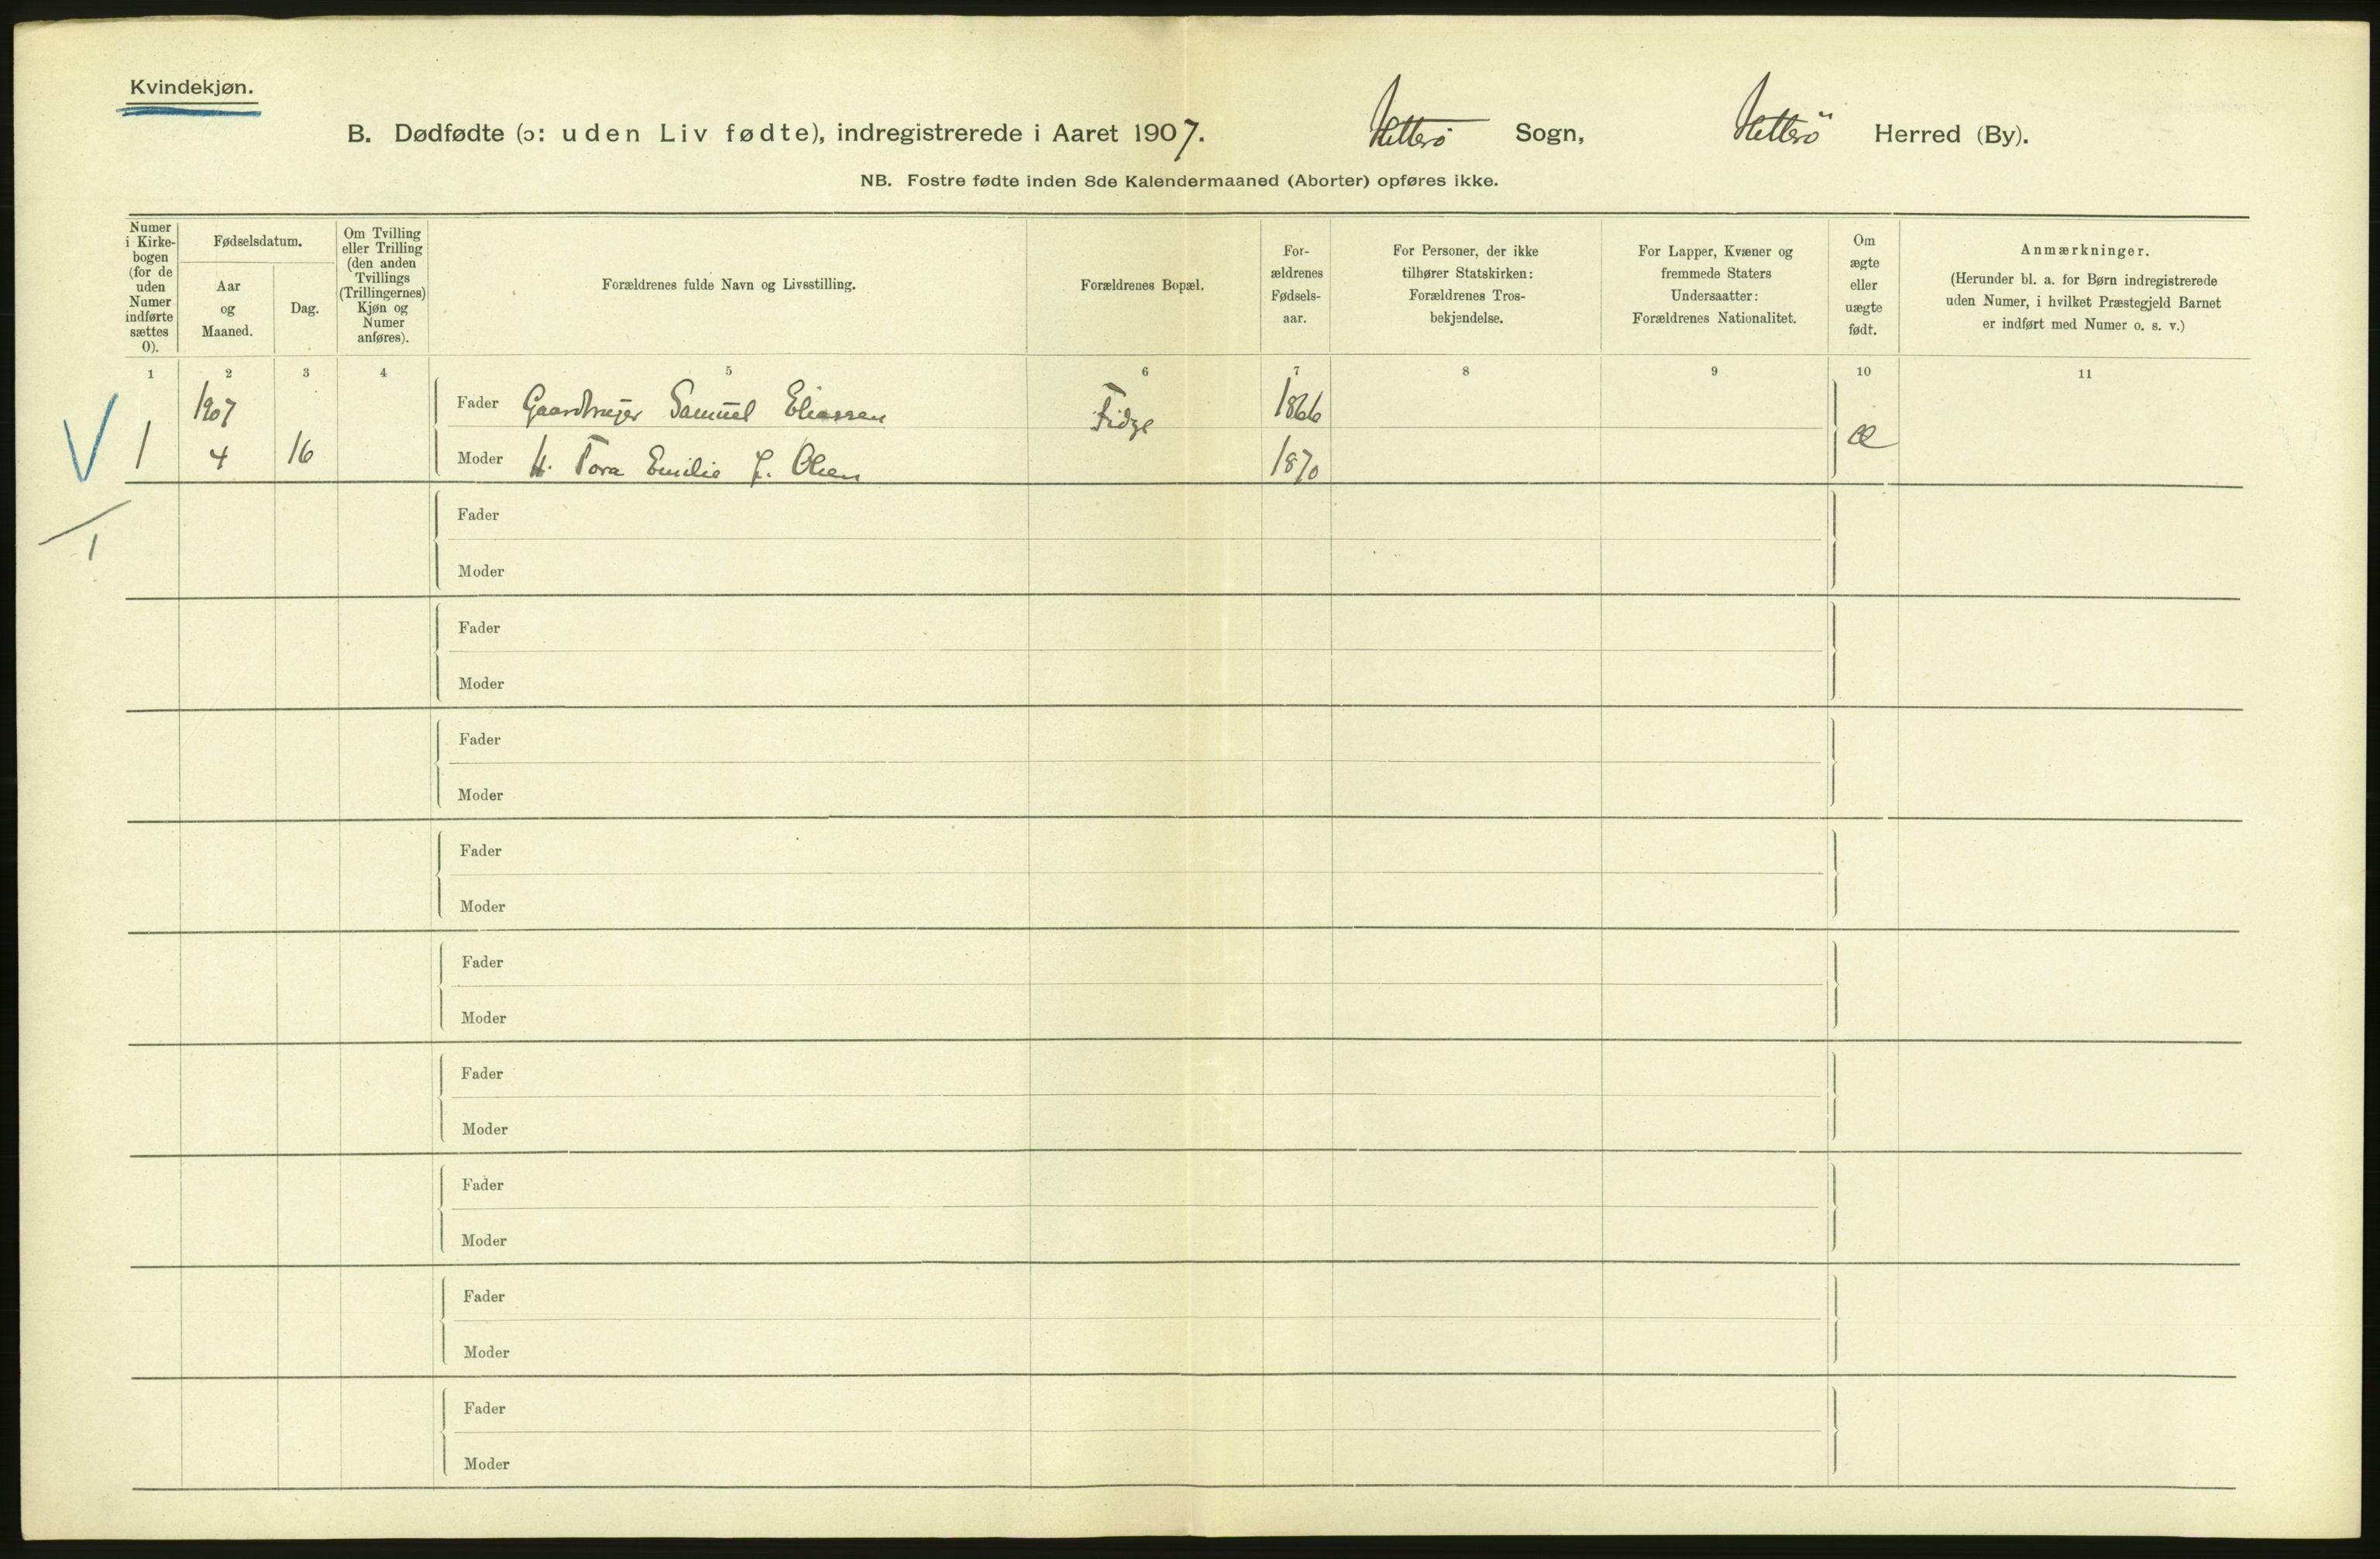 Kvindekjøn.
B. Dødfødte (ɔ: uden Liv fødte), indregistrerede i Aaret 1907. Hitterø Sogn, Hitterø Herred (By).
NB. Fostre fødte inden 8de Kalendermaaned (Aborter) opføres ikke.
Numer
i Kirke-
bogen
(for de
uden
Numer
indførte
sættes
0).
Fødselsdatum.
Aar
og
Maaned.
Dag.
Om Tvilling
eller Trilling
(den anden
Tvillings
(Trillingernes)
Kjøn og
Numer
anføres).
Forældrenes fulde Navn og Livsstilling.
Forældrenes Bopæl.
For-
ældrenes
Fødsels-
aar.
For Personer, der ikke
tilhører Statskirken:
Forældrenes Tros-
bekjendelse.
For Lapper, Kvæner og
fremmede Staters
Undersaatter:
Forældrenes Nationalitet.
Om
ægte
eller
uægte
født.
Anmærkninger.
(Herunder bl. a. for Børn indregistrerede
uden Numer, i hvilket Præstegjeld Barnet
er indført med Numer o. s. v.)
1 2 3 4 5 6 7 8 9 10 11
1907
Fader Gaardbruger Samuel Eliassen Fidge 1866
1 4 16 Moder H. Tora Emilie f. Olsen 1870 Æ
Fader
1
Moder
Fader
Moder
Fader
Moder
Fader
Moder
Fader
Moder
Fader
Moder
Fader
Moder
Fader
Moder
Fader
Moder